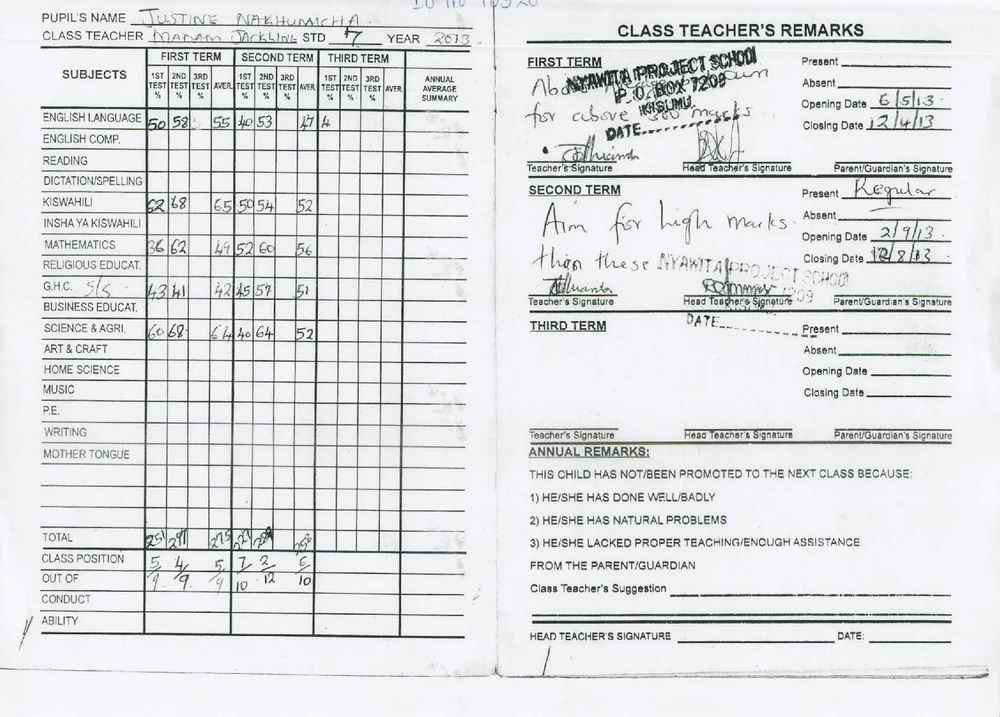 PUPIL'S NAME JUSTINE NAKHUMICHA
CLASS TEACHER MADAM JACKLINE STD 7 YEAR 2013
SUBJECTS FIRST TERM SECOND TERM THIRD TERM ANNUAL AVERAGE SUMMARY
1ST TEST % 2ND TEST % 3RD TEST % AVER. 1ST TEST % 2ND TEST % 3RD TEST % AVER. 1ST TEST % 2ND TEST % 3RD TEST % AVER.
ENGLISH LANGUAGE 50 58 55 40 53 47 4
ENGLISH COMP.
READING
DICTATION/SPELLING
KISWAHILI 62 68 65 50 54 52
INSHA YA KISWAHILI
MATHEMATICS 36 62 49 52 60 56
RELIGIOUS EDUCAT.
G.H.C. S/S 43 41 42 45 57 51
BUSINESS EDUCAT.
SCIENCE & AGRI. 60 68 64 40 64 52
ART & CRAFT
HOME SCIENCE
MUSIC
P.E.
WRITING
MOTHER TONGUE
TOTAL 251 297 275
CLASS POSITION 5 4 5 7 2 6
OUT OF 9 9 9 10 12 10
CONDUCT
ABILITY
CLASS TEACHER'S REMARKS
FIRST TERM
NYAWITA PROJECT SCHOOL
P. O. BOX 7209
KISUMU
DATE
for above marks
Present
Absent
Opening Date 6/5/13
Closing Date 12/4/13
Teacher's Signature Head Teacher's Signature Parent/Guardian's Signature
SECOND TERM
Aim for high marks
than these
NYAWITA PROJECT SCHOOL
DATE
Present Regular
Absent
Opening Date 2/9/13
Closing Date 12/8/13
Teacher's Signature Head Teacher's Signature Parent/Guardian's Signature
THIRD TERM
Present
Absent
Opening Date
Closing Date
Teacher's Signature Head Teacher's Signature Parent/Guardian's Signature
ANNUAL REMARKS:
THIS CHILD HAS NOT/BEEN PROMOTED TO THE NEXT CLASS BECAUSE:
1) HE/SHE HAS DONE WELL/BADLY
2) HE/SHE HAS NATURAL PROBLEMS
3) HE/SHE LACKED PROPER TEACHING/ENOUGH ASSISTANCE
FROM THE PARENT/GUARDIAN
Class Teacher's Suggestion
HEAD TEACHER'S SIGNATURE DATE: